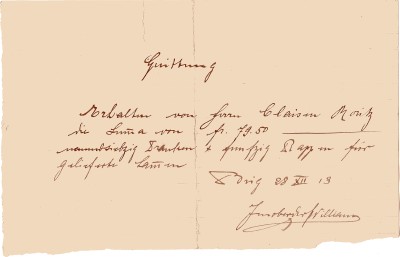 Quittung
Erhalten von Herrn Claisen Moritz
die Suma von fr. 79.50
neunundsiebzig Franken & funfzig Rappen für
gelieferte
Brig 28 XII 13